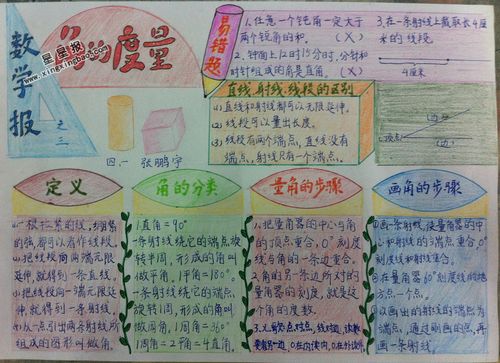 数学报
之三
角的度量
星星报
www.xingxingbao.com
四.一 张鹏宇
易错题
1.任意一个钝角一定大于
两个锐角的和。 (X)
2.钟面上12时15分,分针和
时针组成的角是直角。(X)
3.在一条射线上截取长4厘
米的线段。
4厘米
直线、射线、线段的区别
(1)直线和射线都可以无限延伸。
(2)线段可以量出长度。
(3)线段有两个端点,直线没有
端点,射线只有一个端点。
顶点
(边)
(边)
定义
(1)一根拉紧的线,绷紧
的弦,都可以看作线段。
(2)把线段向两端无限
延伸,就得到一条直线。
(3)把线段向一端无限延
伸,就得到一条射线。
(4)从一点引出两条射线所
组成的图形叫做角。
角的分类
1直角=90°
一条射线绕它的端点旋
转半周,形成的角叫
做平角。1平角=180°。
一条射线绕它的端点,
旋转1周,形成的角叫
做周角。1周角=36°
1周角=2平角=4直角。
量角的步骤
1.把量角器的中心与角
的顶点重合,0°刻度
线与角的一条边重合。
2.角的另一条边所对的
量角器的刻度,就是这
个角的度数。
画角的步骤
①画一条射线,使量角器的中
心和射线的端点重合,0°
刻度线和射线重合。
②在量角器60°刻度线的地
方点一个点。
③以画出的射线的端点为
端点,通过刚画的点,再
画一条射线。